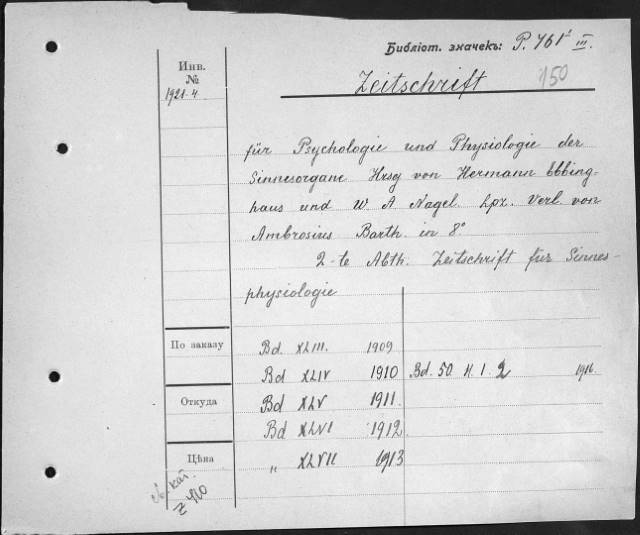 Библіот. значекъ: P. 761¹ III.
Инв.
№
1921.4
Zeitschrift 150
für Psychologie und Physiologie der
Sinnesorgane Hrsg von Hermann Ebbing-
haus und W. A Nagel. Lpz. Verl. von
Ambrosius Barth. in 8°
2-te Abth. Zeitschrift für Sinnes-
physiologie
По заказу
Bd. XLIII. 1909
Bd XLIV 1910 Bd. 50 H. 1. 2 1916.
Откуда
Bd XLV 1911.
Bd XLVI 1912.
Цѣна
„ XLVII 1913
кат.
Z 410